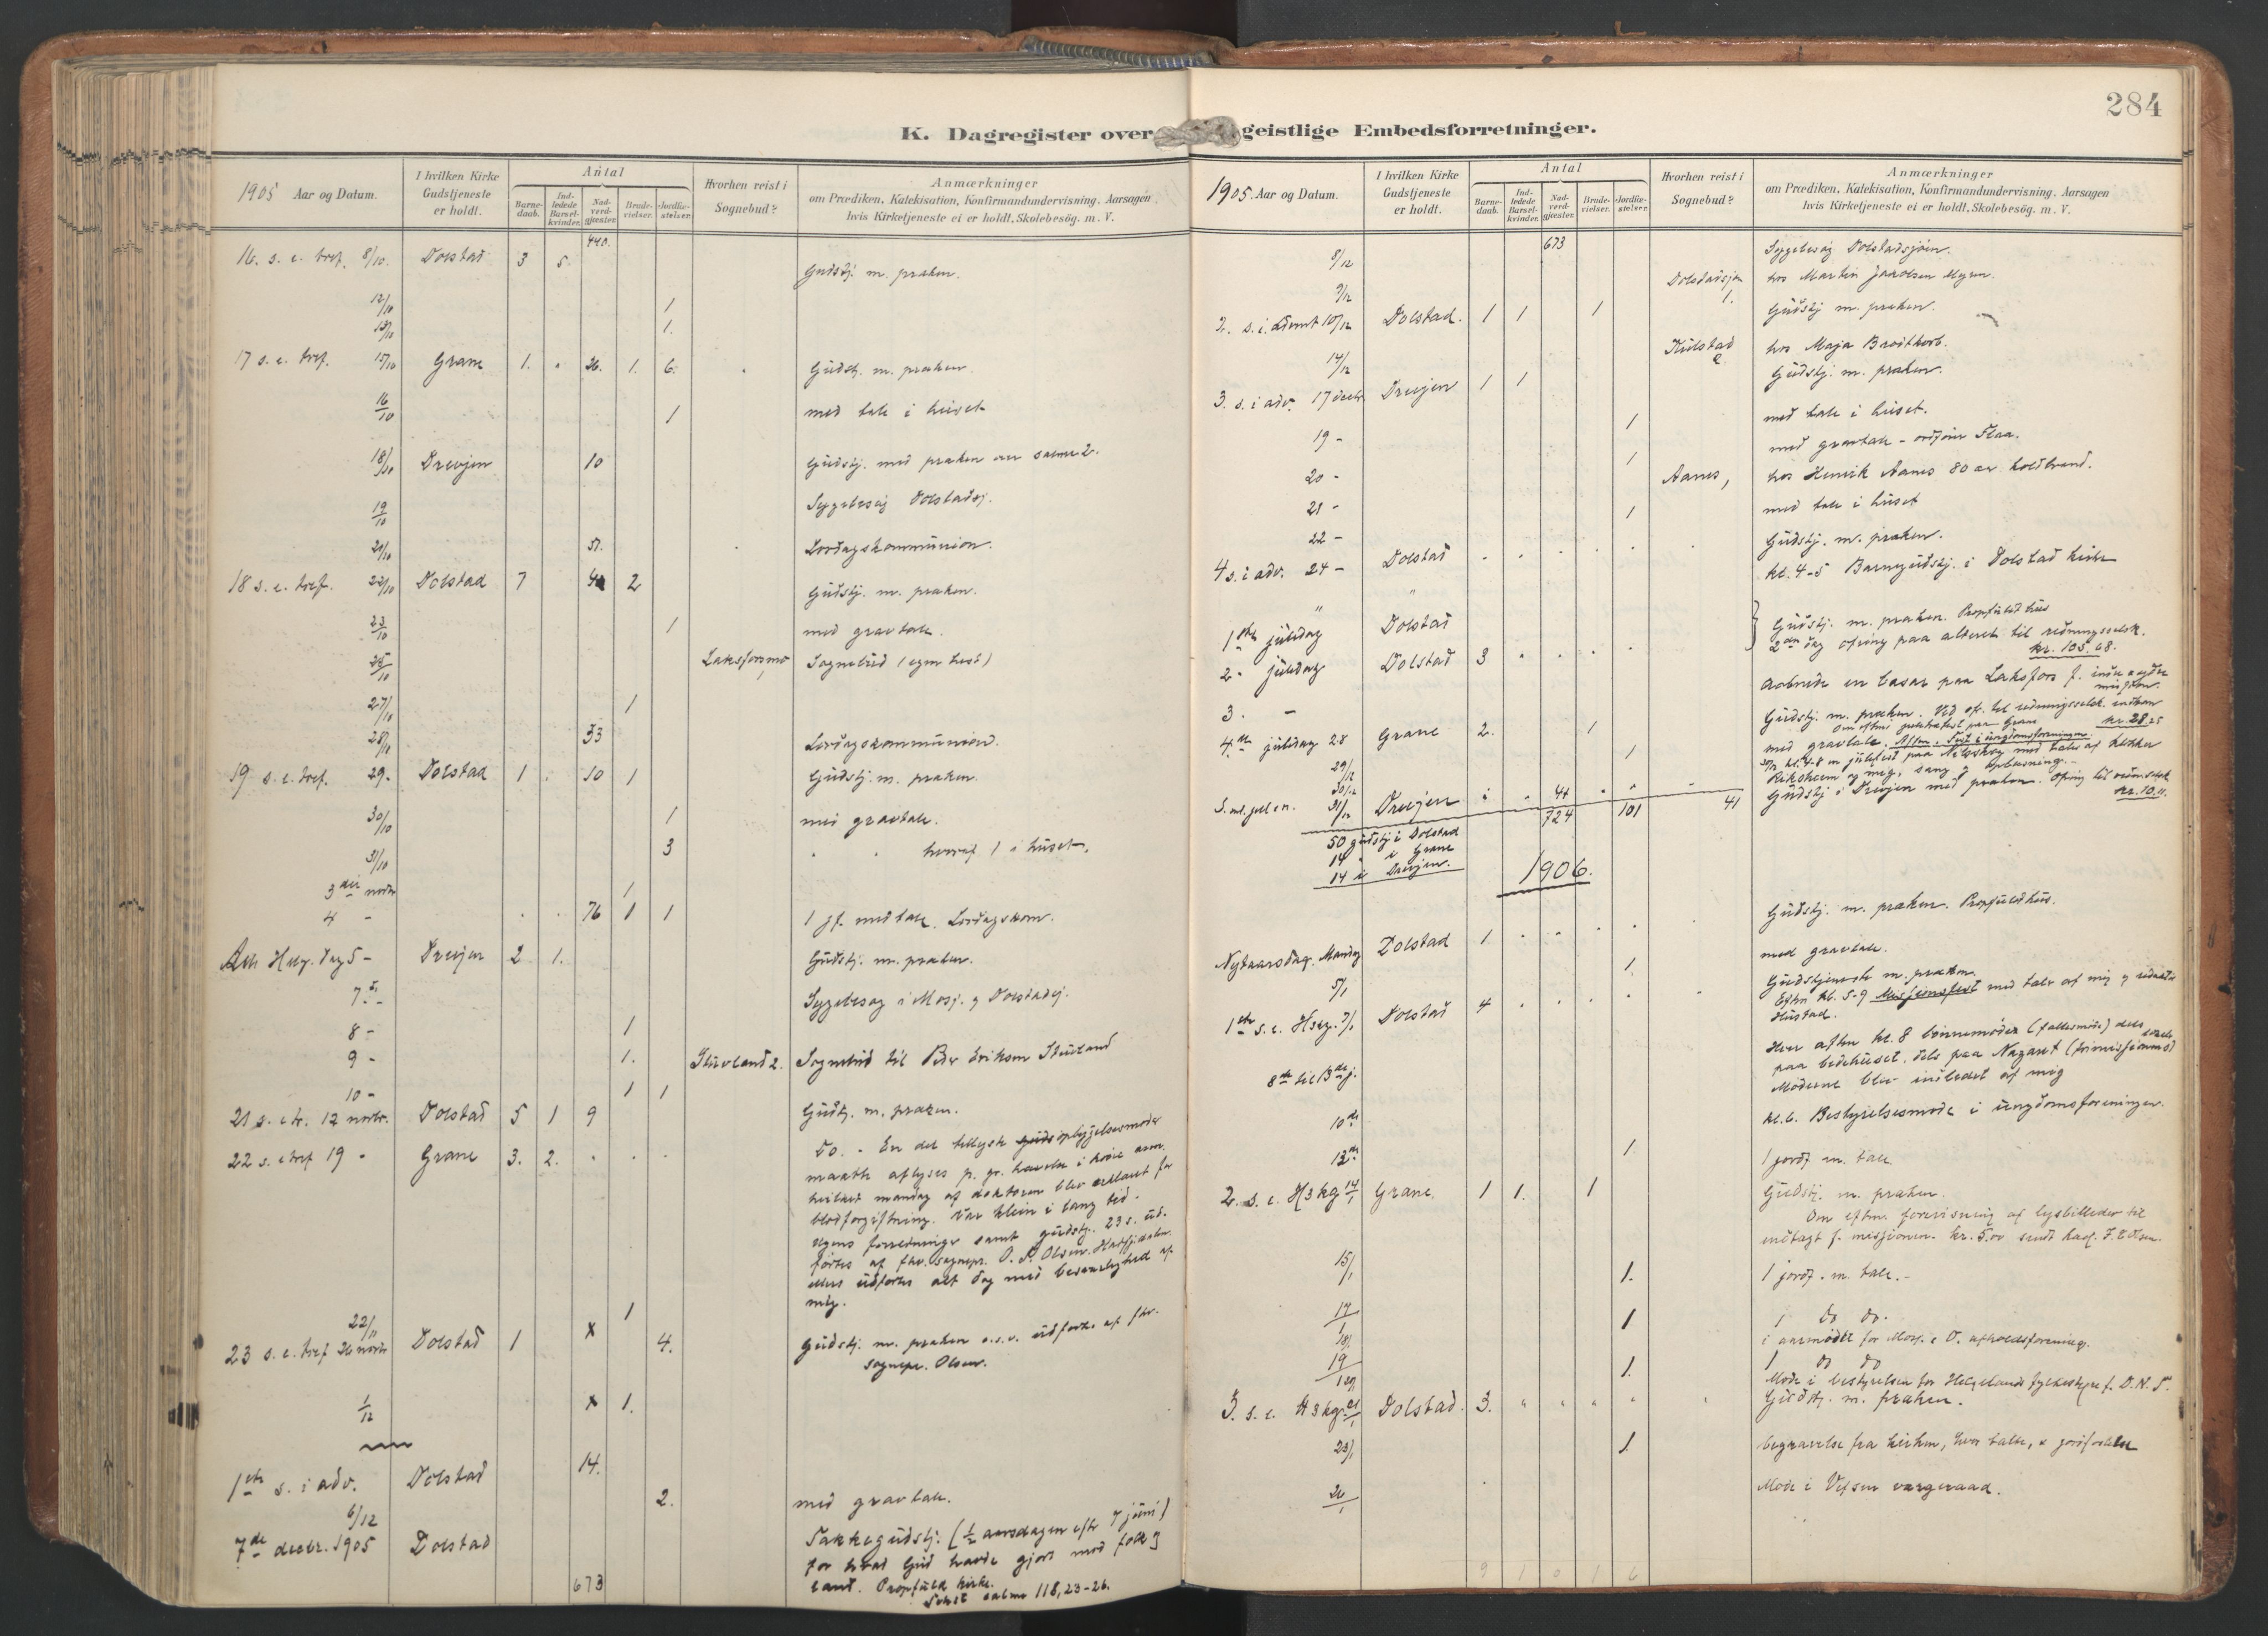 284
K. Dagregister over geistlige Embedsforretninger.
1905 Aar og Datum.
I hvilken Kirke Gudstjeneste er holdt.
Antal
Barnedaab.
Indledede Barselkvinder.
Nadverdgjæster.
Brudevielser.
Jordfæstelser.
Hvorhen reist i Sognebud?
Anmærkninger
om Prædiken, Katekisation, Konfirmandundervisning, Aarsagen
hvis Kirketjeneste ei er holdt, Skolebesög. m. V.
440.
16. s. e. tref. 8/10. Dolstad 3 5. Gudstj. m. præken.
12/10 1
13/10 1.
17 s. e. tref. 15/10 Grane 1. " 26. 1. 6. Gudstj. m. præken.
16/10 1 med tale i huset
18/10 Drevjen 10 Gudstj. med præken over salme 2.
19/10 Sygebesøg Dolstadsj.
21/10 51. Lørdagskommunion.
18 s. e. tref. 22/10 Dolstad 7 2 Gudstj. m. præken.
23/10 1 med gravtale.
25/10 Laksforsmo, Sognebud (egen hest)
27/10 1
28/10 53 Lørdagskommunion.
19 s. e. tref. 29- Dolstad 1 . 10 1 Gudstj. m. præken.
30/10 1 med gravtale.
31/10 3 " " hvoraf 1 i huset.
3die novbr 1
4 - 76 1 1 1 jf. med tale. Lørdagskom.
Alle Helg. dag 5 - Drevjen 2 1. Gudstj. m. præken.
7de - Sygebesøg i Mosj. og Dolstadsj.
8 - 1
9 - 1. 2. Sognebud til Peder Eriksen
10 - 1 1
21 s. e. tr. 12 novbr. Dolstad 5 1 9 Gudstj. m. præken.
22 s. e. tref 19 " Grane 3. 2. " " " Do. - En del tillyste opbyggelsesmøder
maatte aflyses p. gr. hævelse i høire arm.
hvilket mandag af doktoren blev erklært for
blodforgiftning. Var klein i lang tid.
Ugens forretninger samt gudstj. 23 s. ud-
førtes af fhv. sognepr. O. A. Olsen. Hatfjeldalen
ellers udførtes alt dog med besværlighed af
mig.
22/11 1
23 s. e. tref 26 novbr Dolstad 1 x 4. Gudstj. m. præken o.s.v. udførtes af fhv.
sognepr. Olsen.
1/12 x 1.
1ste s. i adv. Dolstad 14.
6/12 2. med gravtale.
7de decbr. 1905 Dolstad Takkegudstj. (½ aarsdagen efter 7 juni)
for hvad Gud havde gjort med folk og
land. Propfuld kirke.
Tekst salme 118, 23-26.
673
1905. Aar og Datum.
I hvilken Kirke Gudstjeneste er holdt.
Antal
Barnedaab.
Indledede Barselkvinder.
Nadverdgjæster.
Brudevielser.
Jordfæstelser.
Hvorhen reist i Sognebud?
Anmærkninger
om Prædiken, Katekisation, Konfirmandundervisning, Aarsagen
hvis Kirketjeneste ei er holdt, Skolebesög. m. V.
673
8/12 Sygebesøg Dolstadsjøen.
9/12 Dolstadsjøen 1. hos Martin Jacobsen Myren.
2. s. i advent 10/12 Dolstad. 1 1 1 Gudstj m. præken.
14/12 Kulstad 2 hos Maja
3. s. i adv. 17 decbr. Drevjen 1 1 Gudstj. m. præken.
19 - 1 med tale i huset.
20 - 1 med gravtale - ordfører
21 - Aanes, hos Henrik Aanes 80 aar koldbrand.
22 - 1 med tale i huset
4 s. i adv. 24 - Dolstad " " " " " Gudstj. m. præken.
" " kl. 4-5 Barnegudstj. i Dolstad kirke
1ste juledag Dolstad Gudstj. m. præken. Propfuldt hus
2- juledag Dolstad 3 " " " " 2den dag ofring paa alteret til redningsselsk.
kr. 105.68.
3. - Aabnede en basar paa Laksfors f. indre og ydre
mission.
4de juledag 28 Grane 2. 1 Gudstj. m. præken. Ved ofr. til redningsselsk. indkom
kr. 28.25
Om eftmi juletræfest paa Grane
29/12 1 med gravtale. Aften. Fest i ungdomsforeningen.
30/12 kl. 4-8 m juletræfest paa med taler af kirkesanger
og mig, sang og oplæsning.
S. ml. jul o n. 31/12 Drevjen " " 44 " " Gudstj i Drevjen med præken. Ofring til redn. selsk.
kr. 10.11.
724 101 41
50 gudstj i Dolstad
14 " i Grane
14 i Drevjen.
1906.
Nytaarsdag. Mandag Dolstad 1 " " " " Gudstj. m. præken. Propfuldt hus.
5/1 1. med gravtale.
1ste s. e. H3kg. 7/1 Dolstad 4 " " " " Gudstjeneste m. præken.
Eftm kl. 5-9 Missionsfest med taler af mig og redaktør
Hustad.
8de til 13de j. Hver aften kl. 8 bønnemøder (fællesmøde) dels
paa bedehuset, dels paa Nazaret (frimissionens)
Møderne blev indledet af mig
10de kl. 6. Bestyrelsesmøde i ungdomsforeningen.
13de 1. 1 jordf m. tale.
2. s. e. H3kg 14/1 Grane. 1 1. 1 Gudstj. m. præken.
Om eftm. forevisning af lysbilleder til
indtægt f. missionen. kr. 5.00 sendt
15/1 1. 1 jordf. m. tale.
17/1 1 1 do do.
18/1 i aarsmødet for Mosj. & O. afholdsforening.
19/1 1. 1 do do
20/1 Møde i bestyrelsen for Helgelands D.N.T.
3. s. e. H3kg. 21/1 Dolstad. 3. " " " " Gudstj. m. præken.
23/1 1. begravelse fra kirken, hvor talte, & jordfæstelse
26/1 Møde i Vefsen vergeraad.
9 1 0 1 6